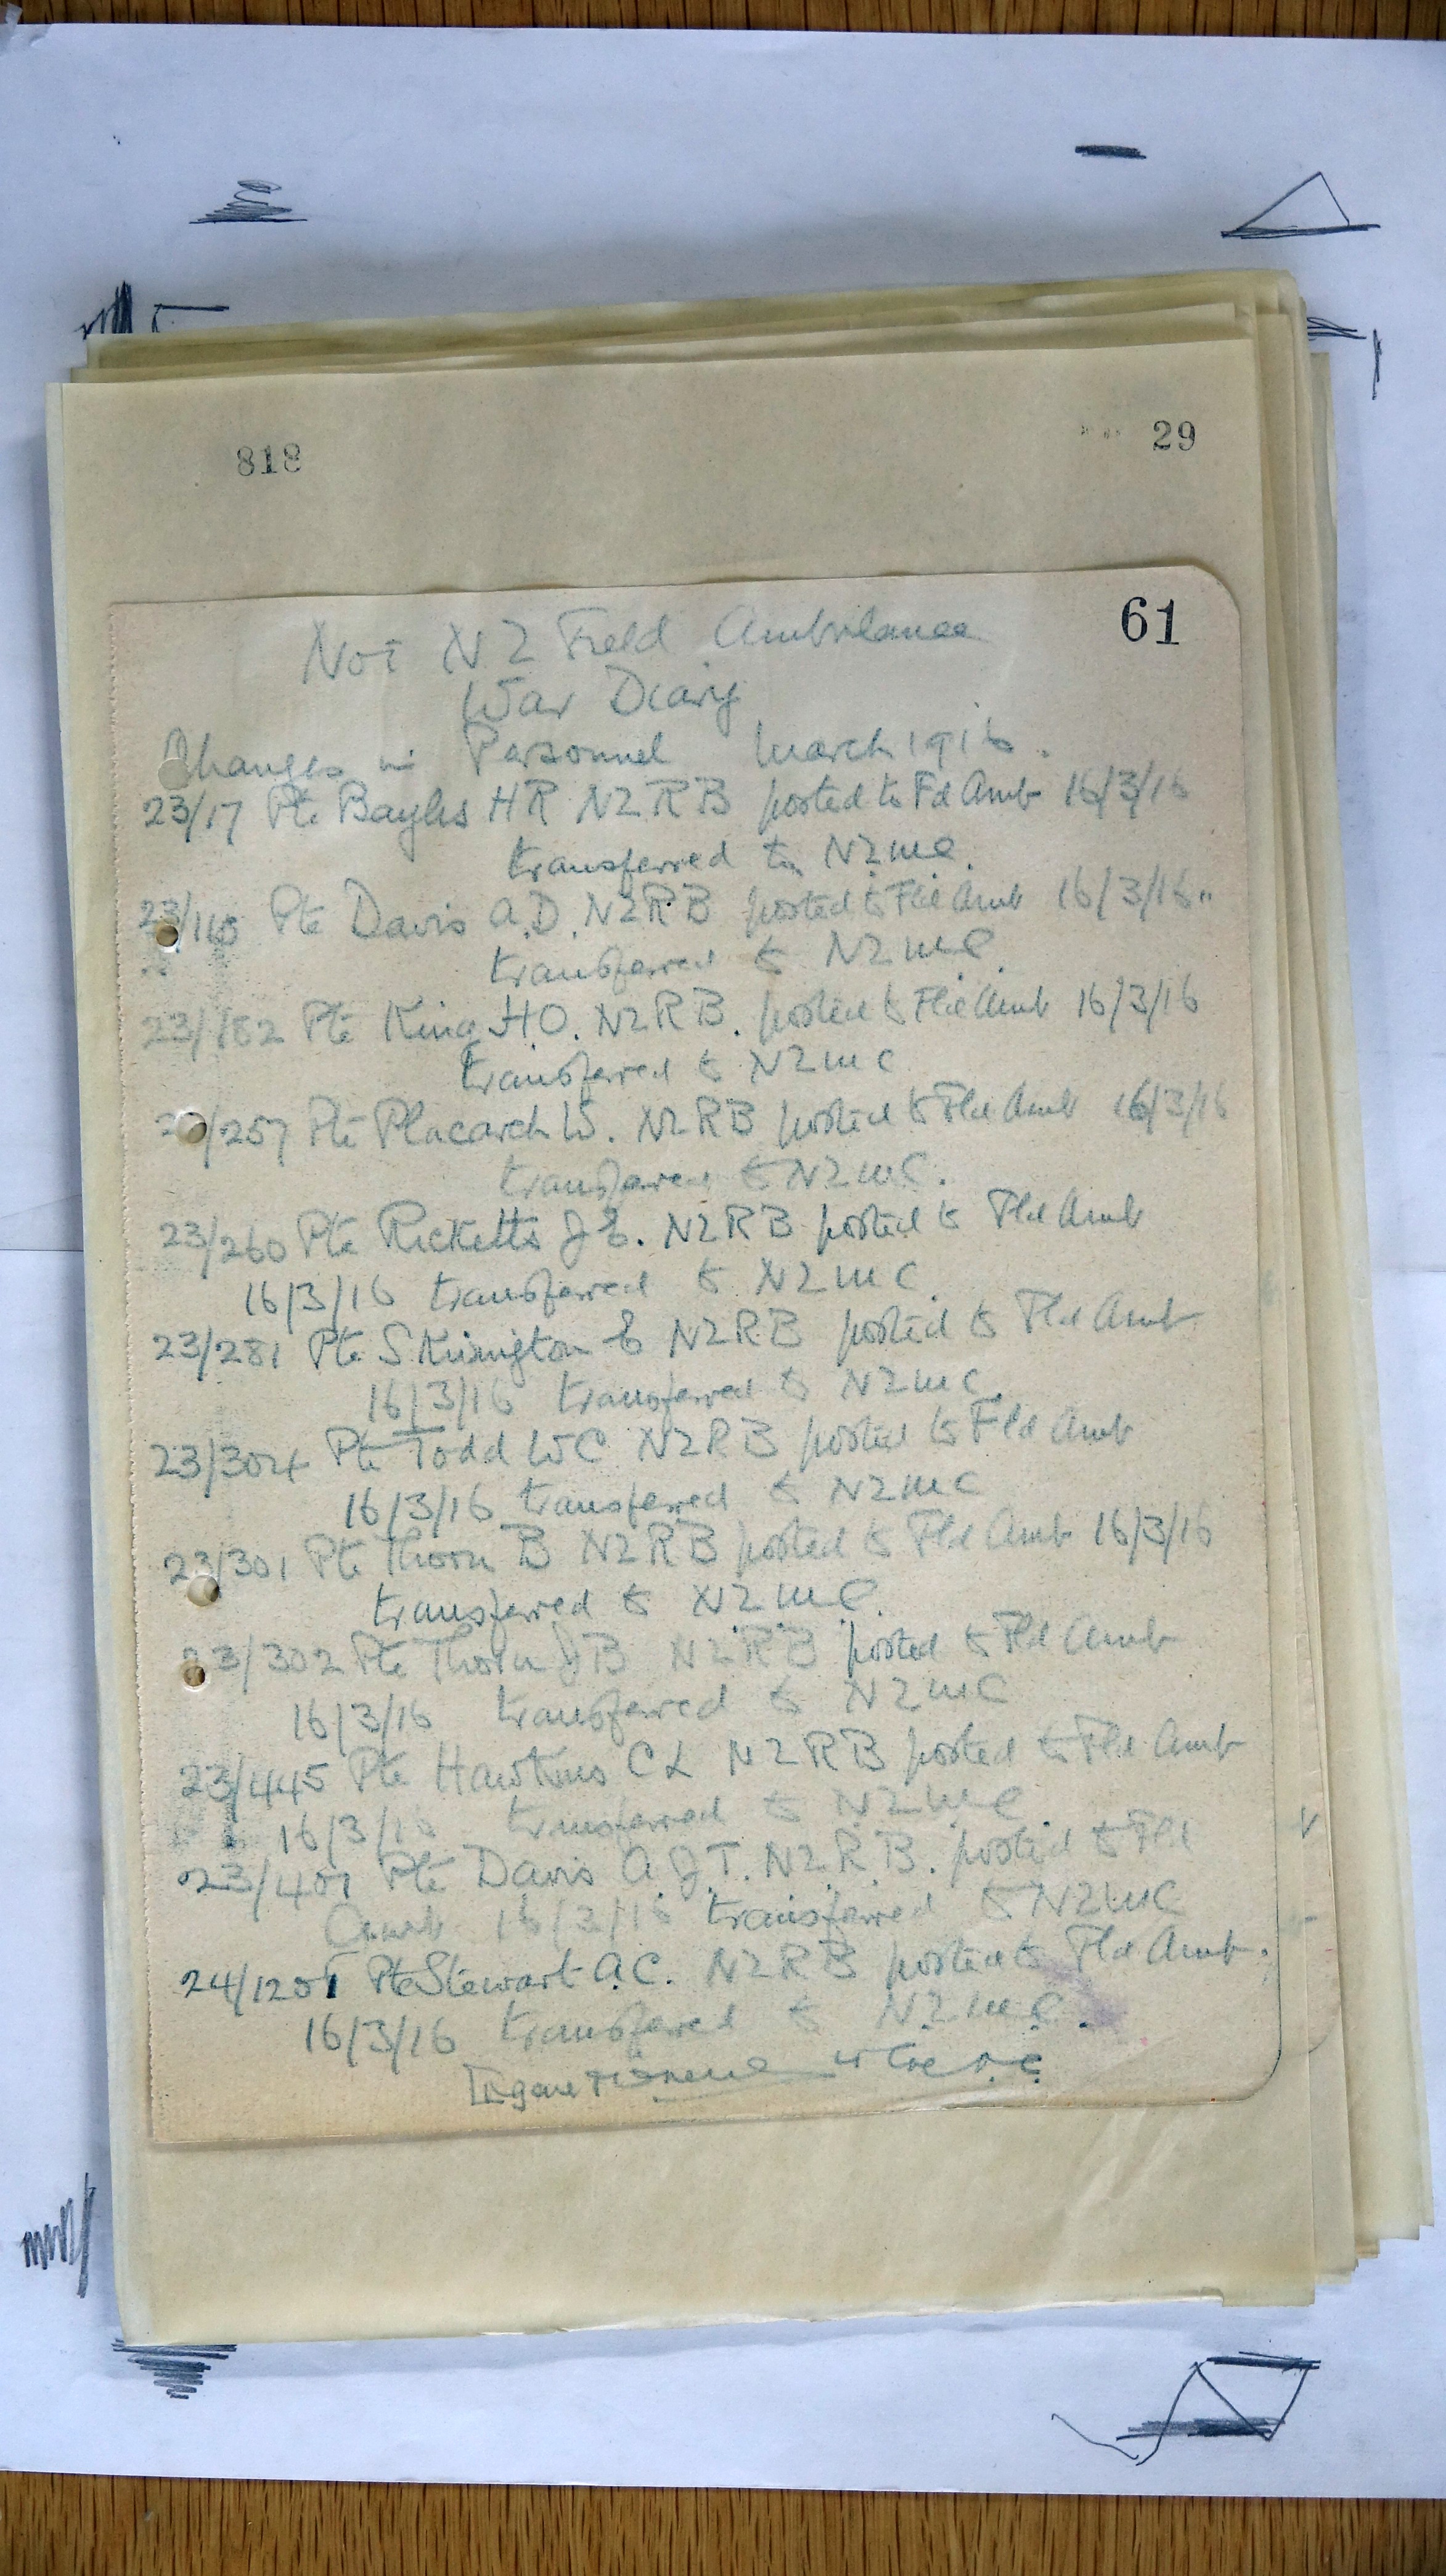 818
29
61
No 1 N Z Field Ambulance
War Diary
Changes in Personnel March 1916.
23/17 Pte Bayliss HR NZRB posted to Fd Amb 16/3/16
transferred to NZMC.
Pte Davis A.D. NZRB posted to Fld Amb 16/3/16
transferred to NZMC.
23/182 Pte King HO. NZRB. posted to Fld Amb 16/3/16
transferred to NZMC
/257 Pte W. NZRB posted to Fld Amb 16/3/16
transferred to NZMC.
23/260 Pte Ricketts J E. NZRB posted to Fld Amb
16/3/16 transferred to NZMC.
23/281 Pte Skivington E NZRB posted to Fld Amb
16/3/16 transferred to NZMC.
23/304 Pte Todd WC NZRB posted to Fld Amb
16/3/16 transferred to NZMC
23/301 Pte Thorn B NZRB posted to Fld Amb 16/3/16
transferred to NZMC.
23/302 Pte Thorn JB NZRB posted to Fld Amb
16/3/16 transferred to NZMC
23/445 Pte Hawkins C L NZRB posted to Fld Amb
16/3/16 transferred to NZMC
Pte Davis A J T. NZRB. posted to Fld
Amb 16/3/16 transferred to NZMC
Pte Stewart A.C. NZRB posted to Fld Amb.
16/3/16 transferred to NZMC.